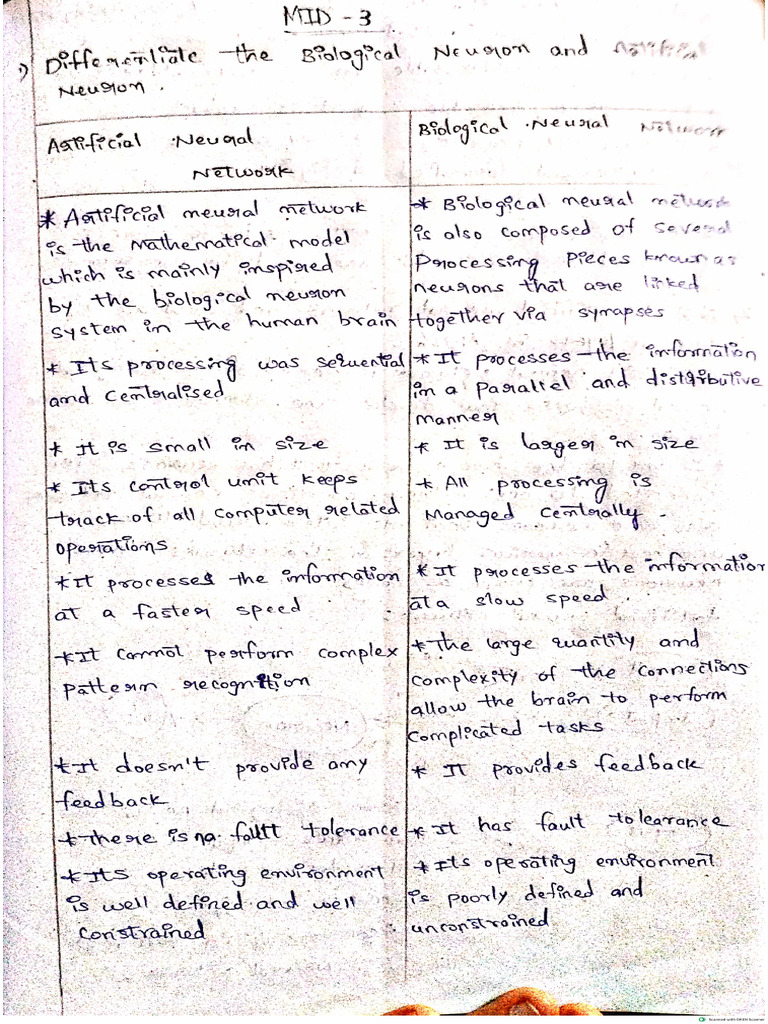 MID - 3
1) Differentiate the Biological Neuron and Artificial
Neuron.
Artificial Neural
Network
* Artificial neural network
is the Mathematical model
which is mainly inspired
by the biological neuron
system in the human brain
* Its processing was sequential
and centralised
* It is small in size
* Its control unit keeps
track of all computer related
operations
* It processes the information
at a faster speed
* It cannot perform complex
pattern recognition
* It doesn't provide any
feedback
* There is no fault tolerance
* Its operating environment
is well defined and well
constrained
Biological Neural Network
* Biological neural network
is also composed of several
Processing Pieces known as
neurons that are licked
together via synapses
* It processes the information
in a parallel and distributive
manner
* It is larger in size
* All processing is
Managed Centrally.
* It processes the information
at a slow speed.
* The large quantity and
complexity of the connections
allow the brain to perform
complicated tasks
* It provides feedback
* It has fault tolearance
* Its operating environment
is poorly defined and
unconstrained
Scanned with OKEN Scanner